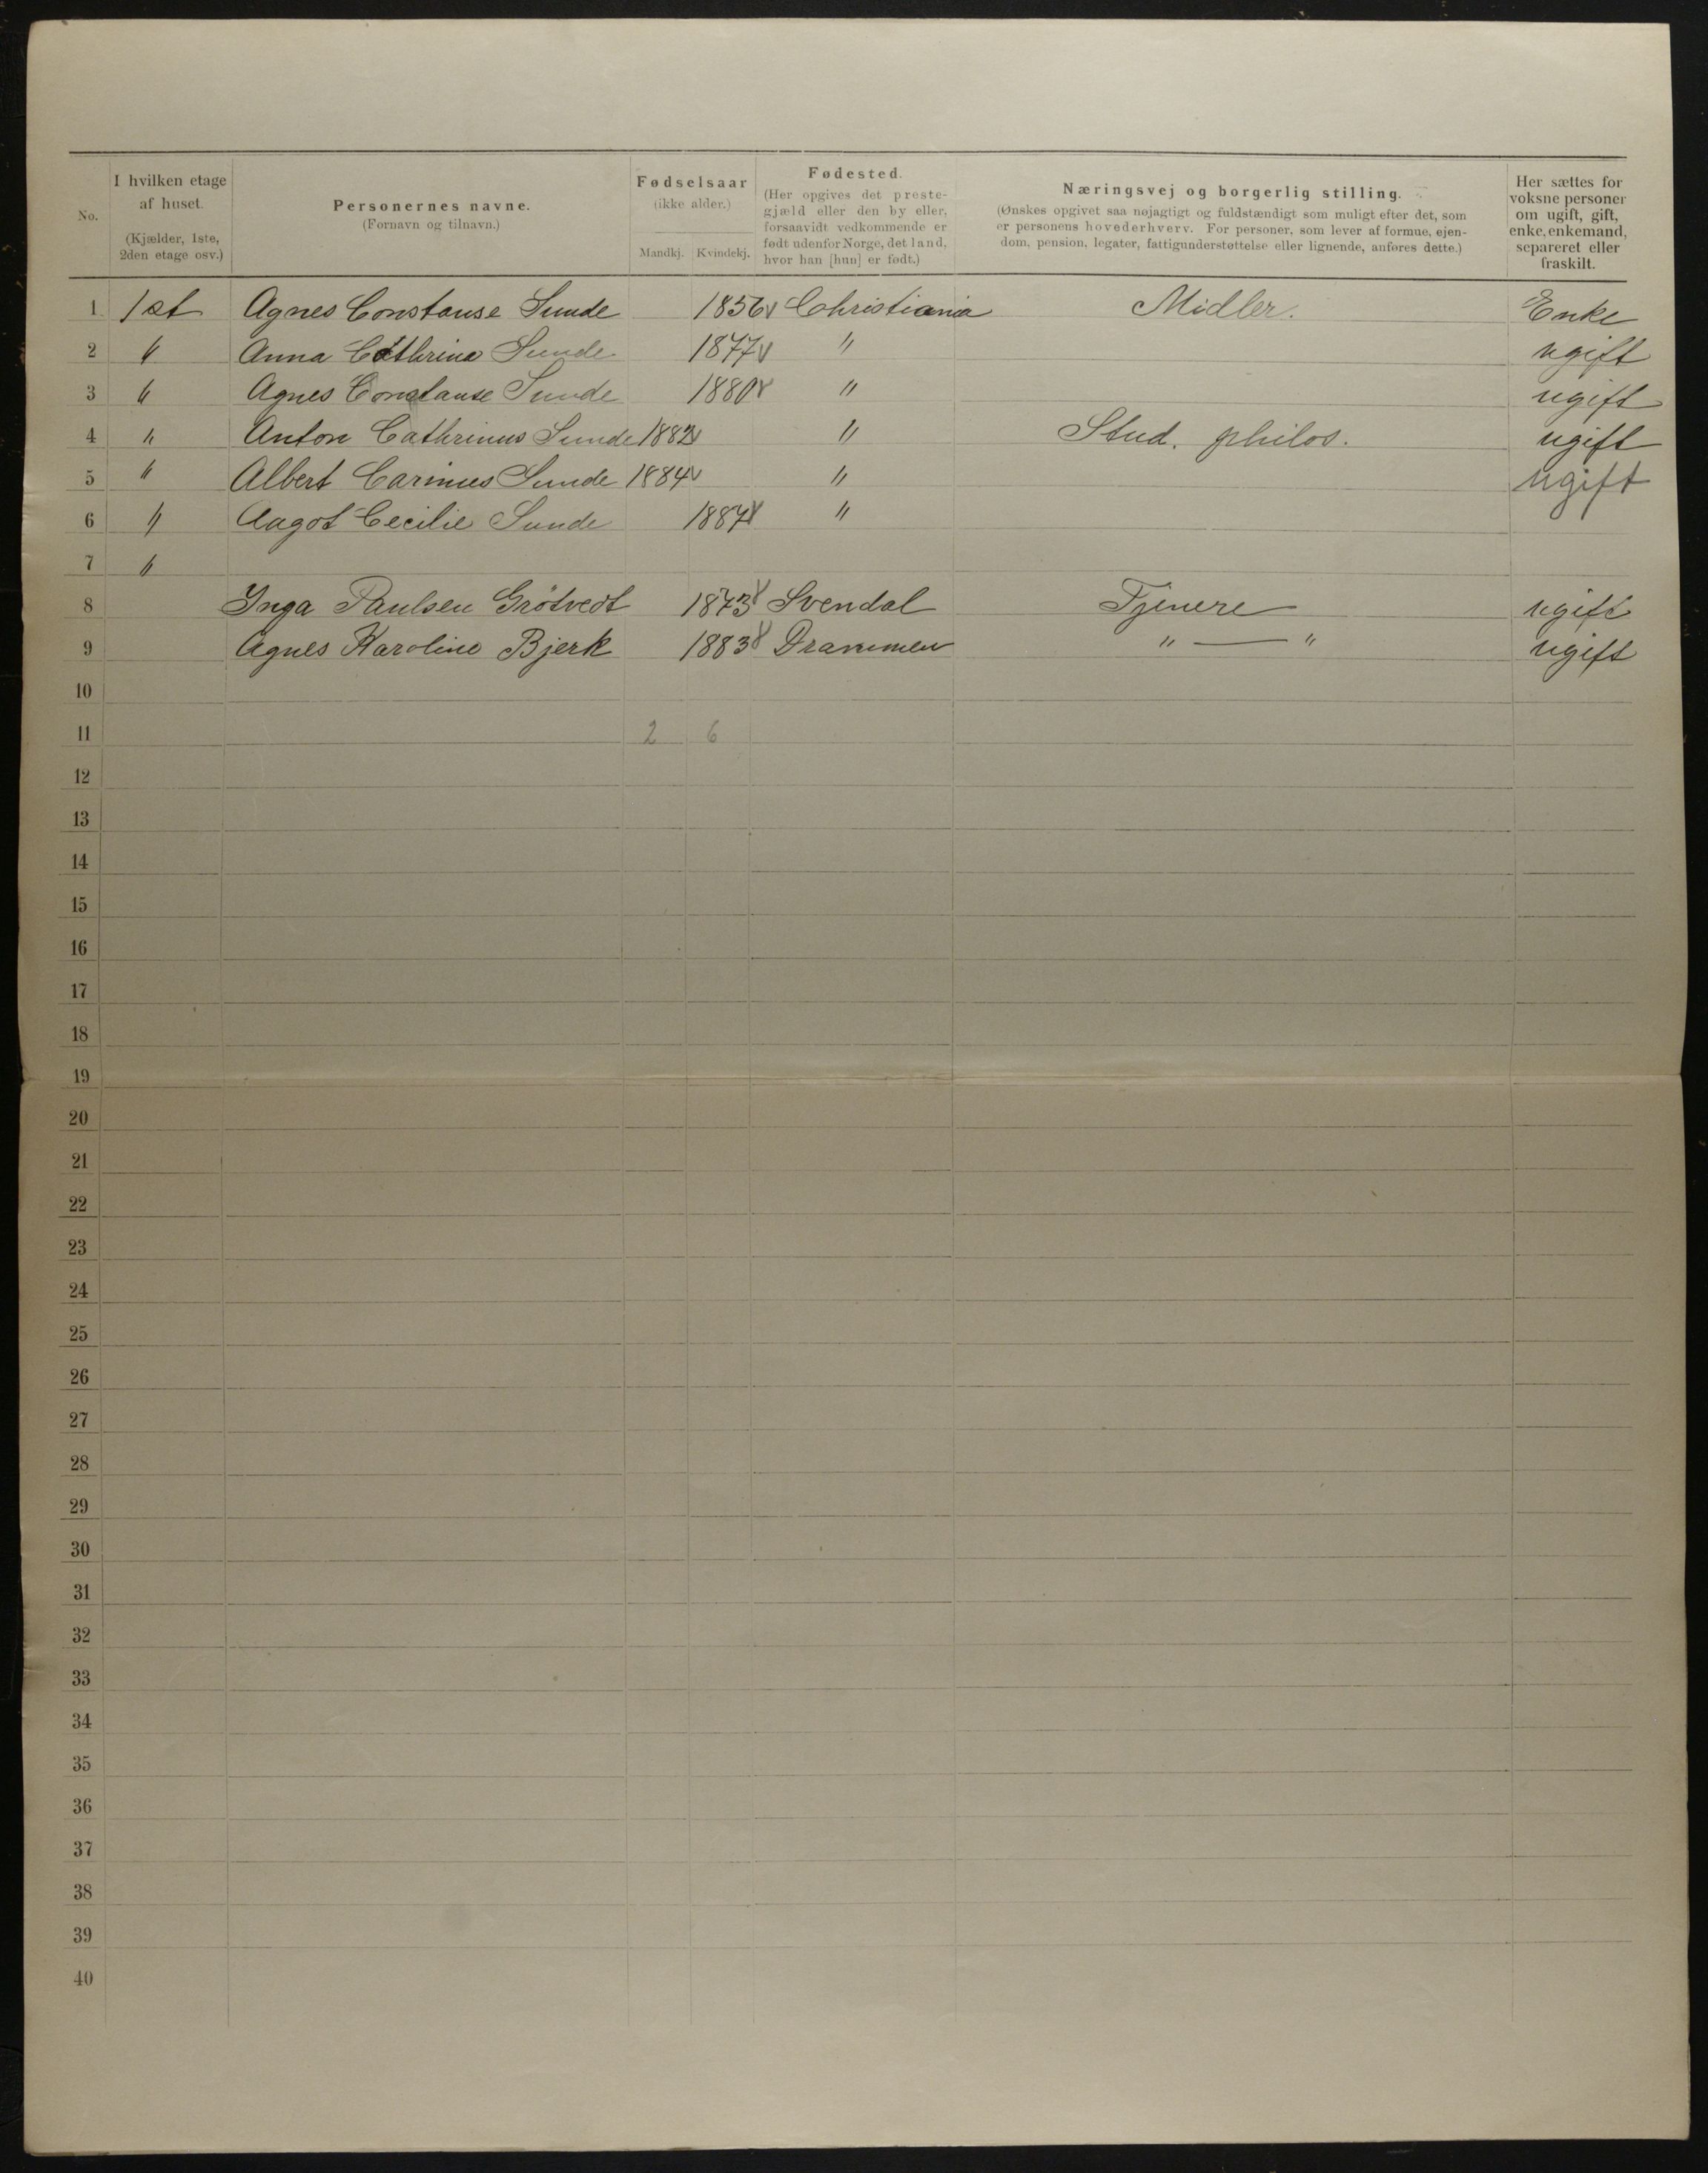 No.
I hvilken etage af huset.
(Kjælder, 1ste, 2den etage osv.)
Personernes navne.
(Fornavn og tilnavn.)
Fødselsaar
(ikke alder.)
Mandkj. Kvindekj.
Fødested.
(Her opgives det preste-
gjæld eller den by eller,
forsaavidt vedkommende er
født udenfor Norge, det land,
hvor han [hun] er født.)
Næringsvej og borgerlig stilling.
(Ønskes opgivet saa nøjagtigt og fuldstændigt som muligt efter det, som
er personens hovederhverv. For personer, som lever af formue, ejen-
dom, pension, legater, fattigunderstøttelse eller lignende, anføres dette.)
Her sættes for
voksne personer
om ugift, gift,
enke, enkemand,
separeret eller
fraskilt.
1 1st Agnes Constanse Sunde 1856 Christiania Midler. Enke
2 " Anna Cathrine Sunde 1877 " ugift
3 " Agnes Constanse Sunde 1880 " ugift
4 " Anton Cathrinus Sunde 1882 " Stud. philos. ugift
5 " Albert Carinius Sunde 1884 " ugift
6 " Aagot Cecilie Sunde 1887 "
7 "
8 Inga Paulsen Grötvedt 1873 Svendal Tjenere ugift
9 Agnes Karoline Bjerk 1883 Drammen " — " ugift
10
11 2 6
12
13
14
15
16
17
18
19
20
21
22
23
24
25
26
27
28
29
30
31
32
33
34
35
36
37
38
39
40